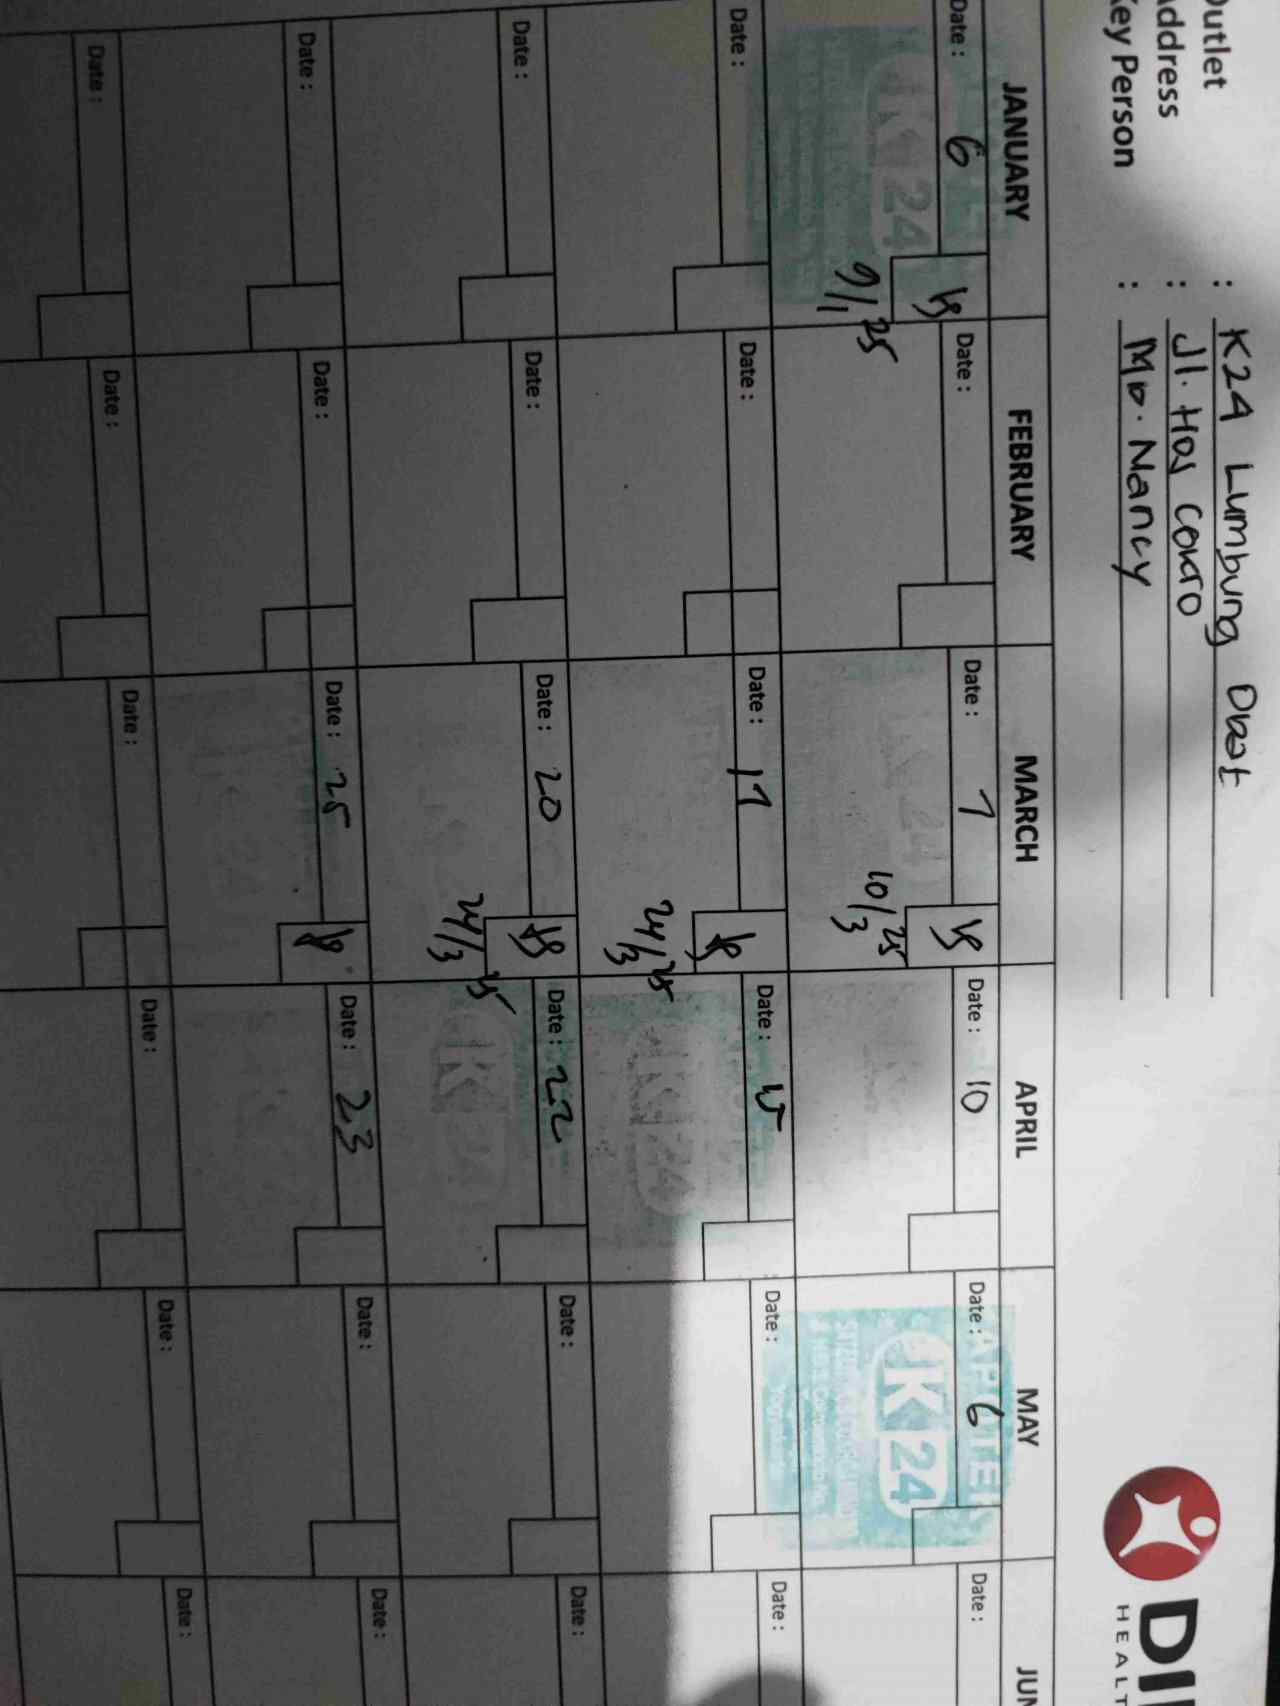 Outlet : K24 Lumbung Obat
Address : Jl. Hos Cokro
Key Person :
Nancy
HEALT
JANUARY FEBRUARY MARCH APRIL MAY JUN
Date : 6 Date : Date : 7 Date : 10 Date : 6 Date :
K 24
9/1 25
10/3 25
Date : Date : Date : 17 Date : Date : Date :
24/3 25
K 24
Date : Date : Date : 20 Date : 22 Date : Date :
24/3 25
K 24
Date : Date : Date : 25 Date : 23 Date : Date :
Date : Date : Date : Date : Date : Date :